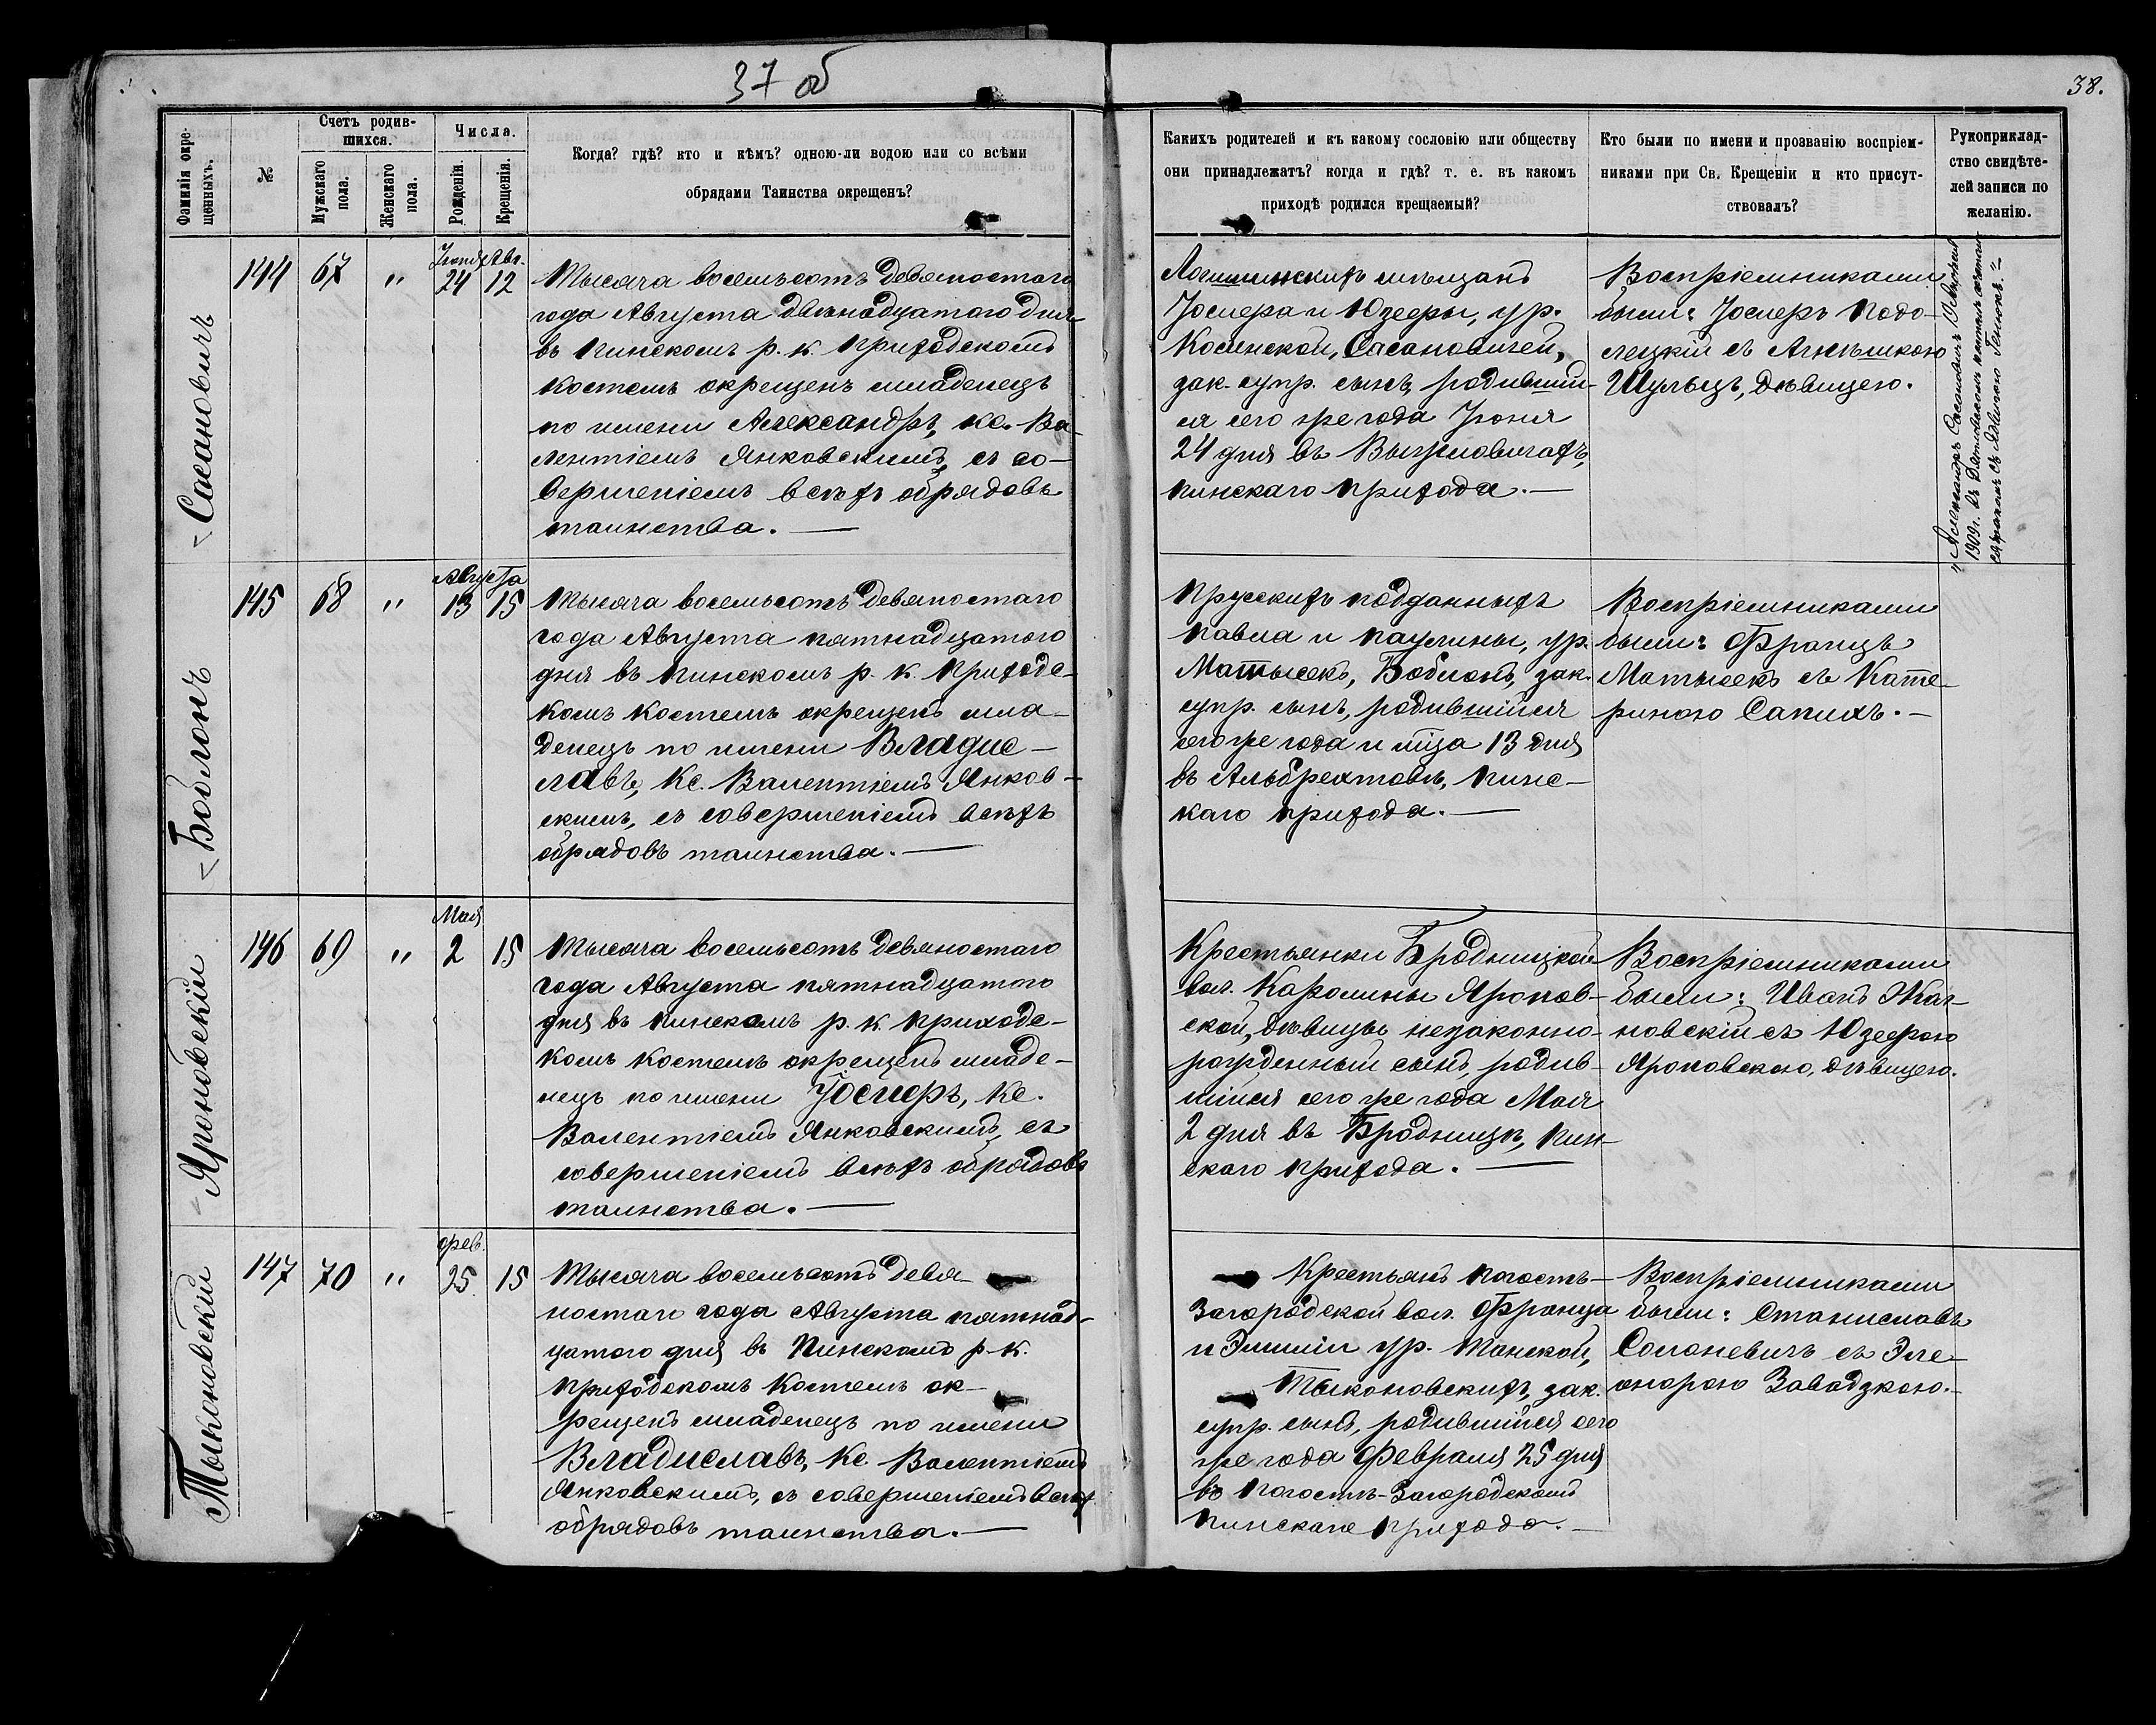 37 об
38.
Фамилія окре-
щенныхъ.
№
Счетъ родив-
шихся.
Мужскаго
пола.
Женскаго
пола.
Числа.
Рожденія.
Крещенія.
Когда? гдѣ? кто и кѣмъ? одною-ли водою или со всѣми
обрядами Таинства окрещенъ?
Какихъ родителей и къ какому сословію или обществу
они принадлежатъ? когда и гдѣ? т. е. въ какомъ
приходѣ родился крещаемый?
Кто были по имени и прозванію воспріем-
никами при Св. Крещеніи и кто присут-
ствовалъ?
Рукоприклад-
ство свидѣте-
лей записи по
желанію.
Сасановичъ
144
67
"
Іюня Авг.
24 12
Тысяча восемьсотъ девяностаго
года Августа двѣнадцатого дня
въ Пинскомъ р. к. Приходскомъ
костелѣ окрещенъ младенецъ
по имени Александръ, Кс. Ва-
лентіемъ Янковскимъ, съ со-
вершеніемъ всѣхъ обрядовъ
таинства.—
Логишинскихъ мѣщанъ
Іосифа и Юзефы, ур.
Косинской, Сасановичей,
зак. супр. сынъ, родившій-
ся сего же года Іюня
24 дня въ Выжловичахъ,
Пинскаго прихода.—
Воспріемниками
были: Іосифъ Подо-
лецкій съ Агнѣшкою
Шульцъ, дѣвицею.
"Александръ Сасановичъ
1909 г. въ костелѣ
съ Ядвигою
Боблонъ
145
68
"
Августа
13 15
Тысяча восемьсотъ девяностаго
года Августа пятнадцатого
дня въ Пинскомъ р. к. Приходс-
комъ костелѣ окрещенъ мла-
денецъ по имени Владис-
лавъ, Кс. Валентіемъ Янков-
скимъ, съ совершеніемъ всѣхъ
обрядовъ таинства.—
Прусскихъ подданныхъ
Павла и Паулины, ур.
Матысекъ, Боблонъ, зак.
супр. сынъ, родившійся
сего же года и м̃ца 13 дня,
въ Альбрехтовѣ, Пинс-
каго прихода.—
Воспріемниками
были: Францъ
Матысекъ съ Кате-
риною Сапихъ.—
Яроновскій
146
69
"
Мая
2 15
Тысяча восемьсотъ девяностаго
года Августа пятнадцатого
дня въ Пинскомъ р. к. приходс-
комъ костелѣ окрещенъ младе-
нецъ по имени Іосифъ, Кс.
Валентіемъ Янковскимъ, съ
совершеніемъ всѣхъ обрядовъ
таинства.—
Крестьянки Бродницкой
вол. Каролины Яронов-
ской, дѣвицы незаконно-
рожденный сынъ, родив-
шійся сего же года Мая
2 дня въ Бродницѣ, Пин-
скаго прихода.—
Воспріемниками
были: Иванъ
съ Юзефою
Яроновскою, дѣвицею.
Тыконовскій
147
70
"
Фев.
25. 15
Тысяча восемьсотъ девя-
ностаго года Августа пятнад-
цатого дня въ Пинскомъ р-к.
Приходскомъ костелѣ ок-
рещенъ младенецъ по имени
Владиславъ, Кс. Валентіемъ
Янковскимъ, съ совершеніемъ всѣхъ
обрядовъ таинства.—
Крестьянъ Погостъ-
Загородской вол. Франца
и Эмиліи ур. Манской,
Тыконовскихъ, зак.
супр. сынъ, родившійся сего
же года Февраля 25 дня
въ Погостѣ-Загородскомъ
Пинскаго прихода.—
Воспріемниками
были: Станиславъ
Солоневичъ съ Эле-
онорою Завадзкою.—